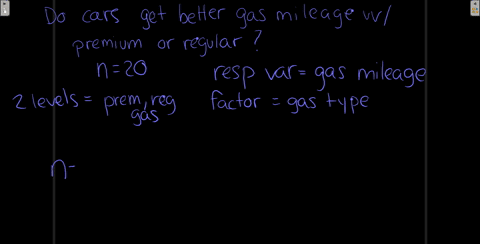 Do cars get better gas mileage w/
premium or regular?
n=20 resp var = gas mileage
2 levels = prem, reg factor = gas type
gas
n=